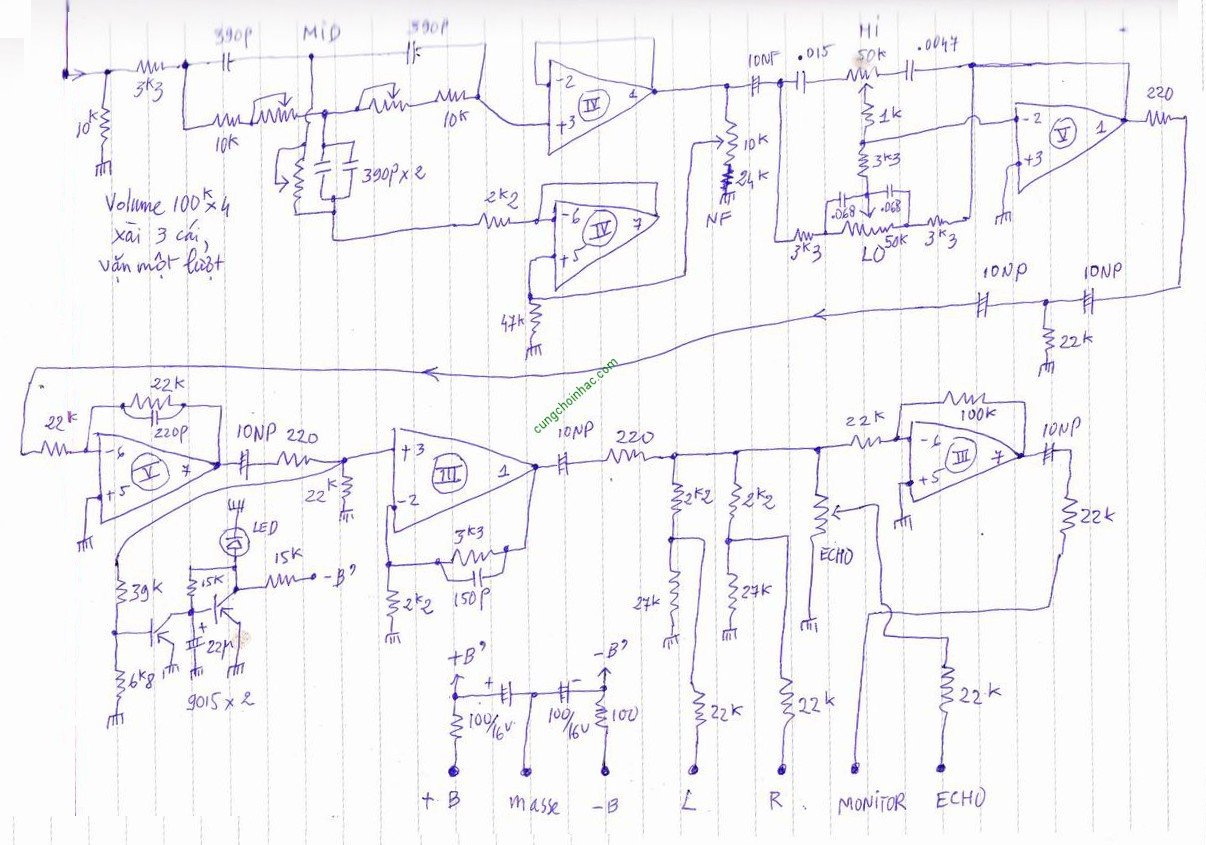 390p
MiD
390p
Hi
3k3
10k
10k
10k
390p x 2
-2
+3
IV
1
10NF
.015
50k
.0047
1k
3k3
10k
24k
NF
-2
+3
V
1
220
.068
.068
3k3
50k
LO
3k3
Volume 100k x 4
xài 3 cái,
vặn một lượt
2k2
-6
+5
IV
7
47k
10NP
10NP
22k
cungchoinhac.com
22k
22k
220p
-6
+5
V
7
10NP
220
22k
+3
-2
III
1
10NP
220
3k3
150p
2k2
22k
100k
-6
+5
III
7
10NP
22k
2k2
2k2
ECHO
27k
27k
LED
15k
15k
-B'
39k
6k8
+
22µ
9015 x 2
+B'
-B'
+
-
100/16v
100/16v
100
22k
22k
22k
+ B
masse
-B
L
R
MONITOR
ECHO